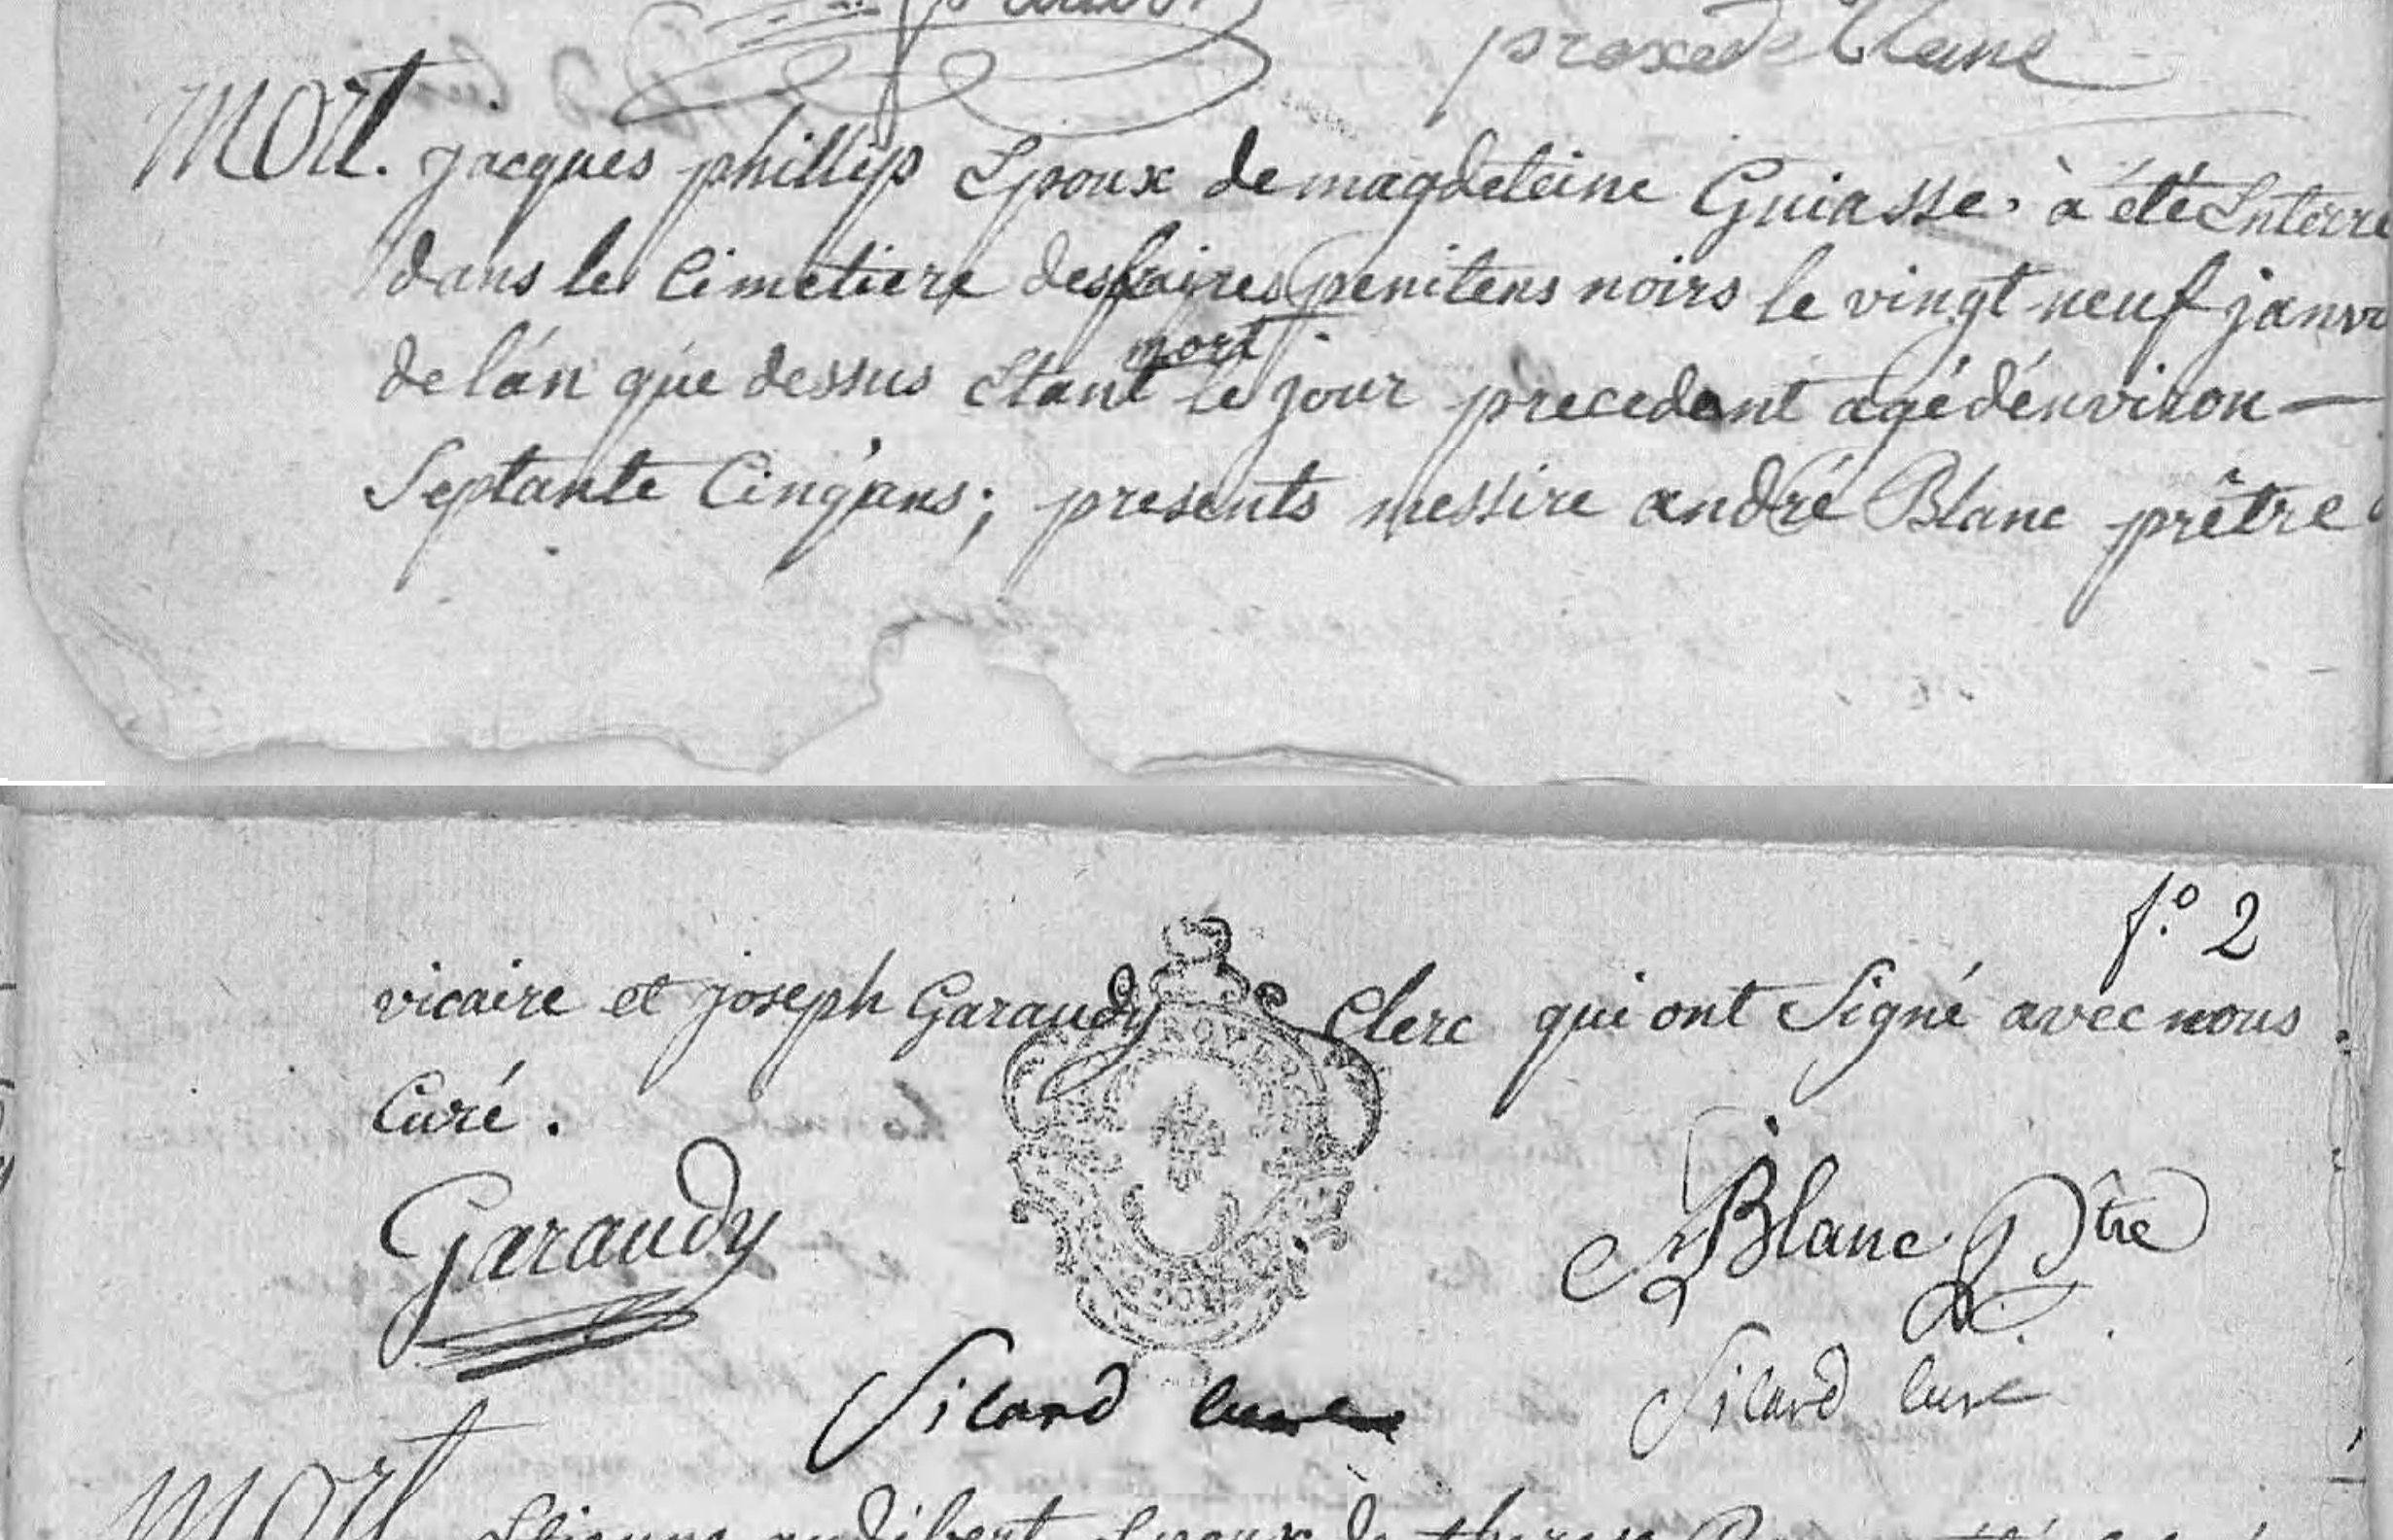 praxede Blanc
Mort. jacques phillip Epoux de magdeleine Guiasse. à été Enterre
dans le Cimetiere des fraires penitens noirs le vingt neuf janvi
de l'án que dessus Etant mort le jour precedant agé d'énviron —
Septante Cinq'ans; presents messire andré Blanc prêtre
f.º 2
vicaire et joseph Garaudy Clerc qui ont Signé avec nous
Curé.
Garaudy
Blanc Ptre
Sicard curé
Sicard curé
Mort Etienne audibert Epoux de therese